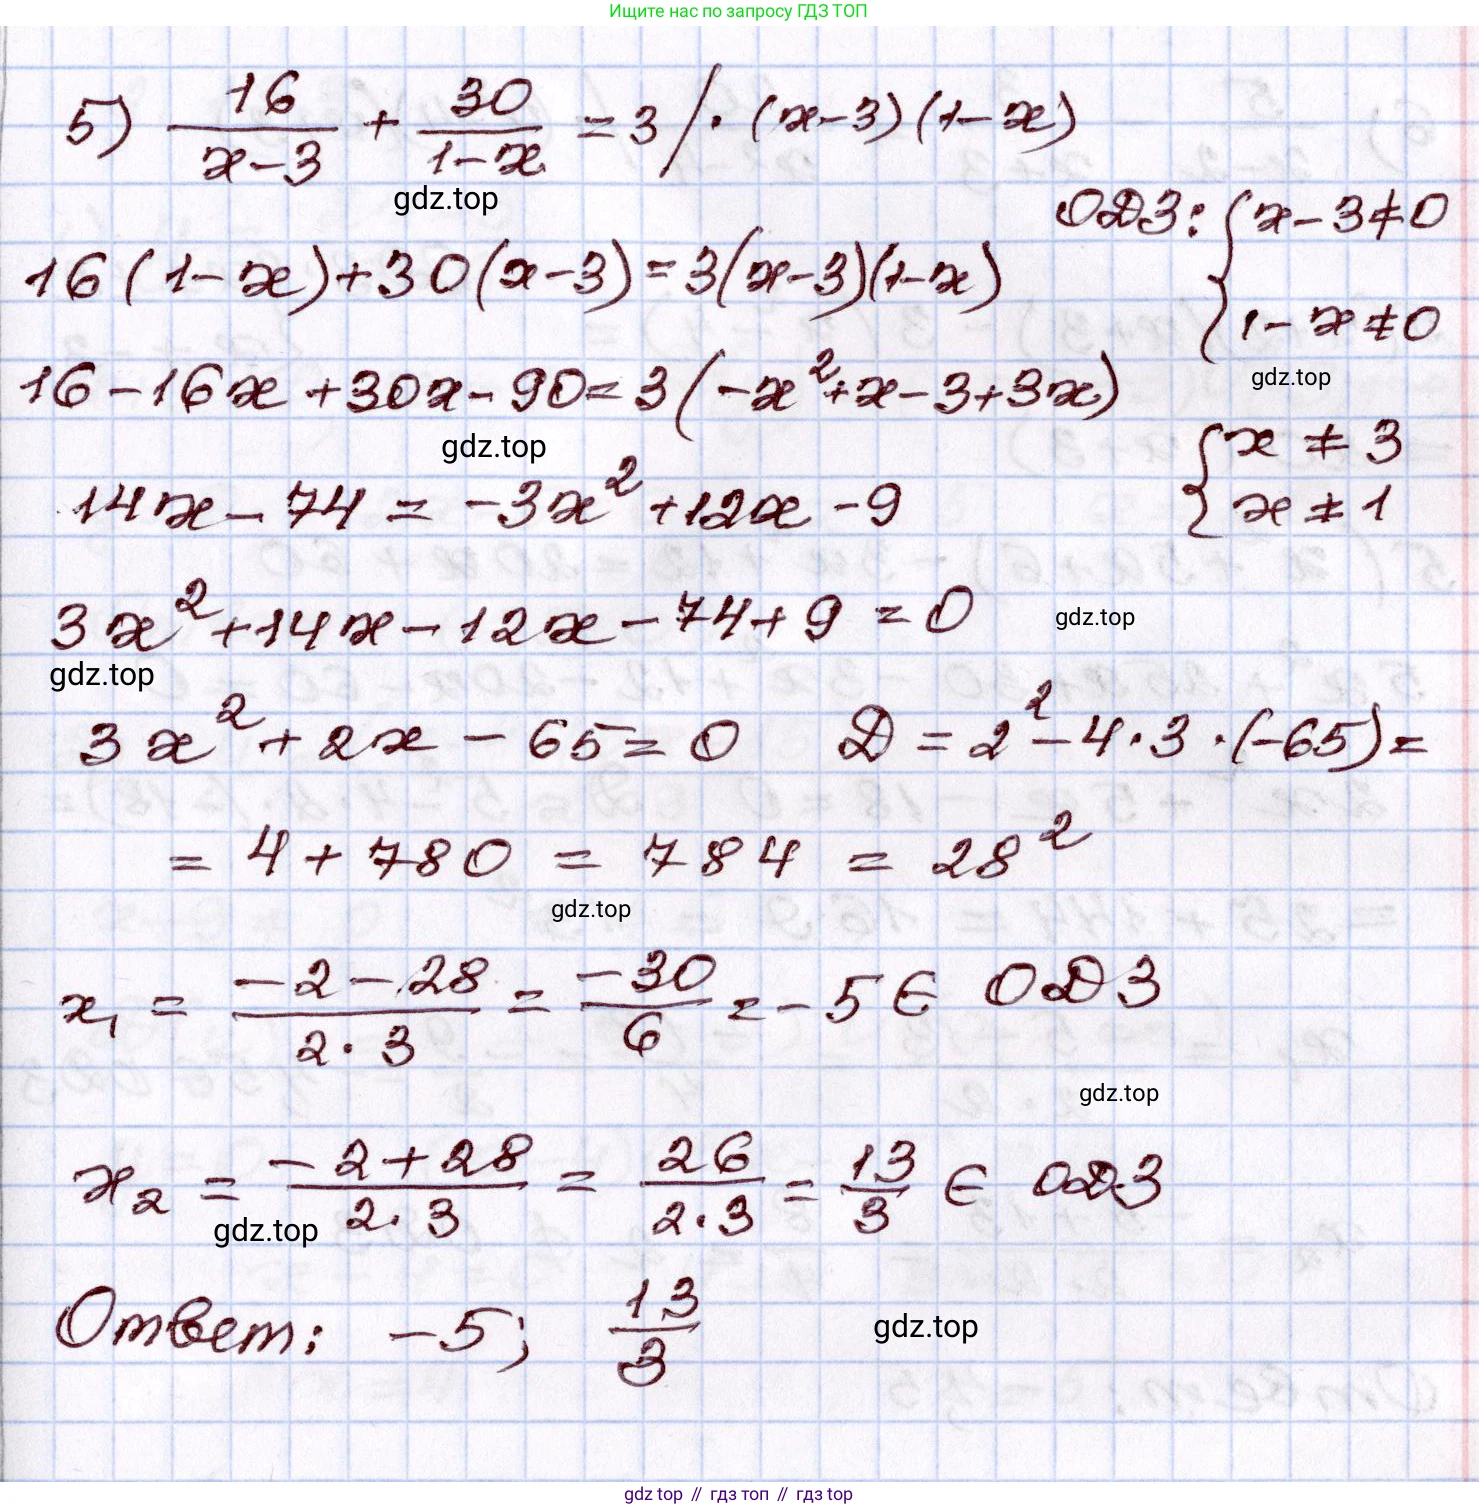 Ищите нас по запросу ГДЗ ТОП
5) 16/(x-3) + 30/(1-x) = 3 / · (x-3)(1-x)
gdz.top
ОДЗ: { x-3≠0
16(1-x)+30(x-3)=3(x-3)(1-x)
1-x≠0
gdz.top
16-16x+30x-90=3(-x²+x-3+3x)
gdz.top
{ x ≠ 3
x ≠ 1
14x-74 = -3x²+12x-9
3x²+14x-12x-74+9=0
gdz.top
gdz.top
3x²+2x-65=0 D=2²-4·3·(-65)=
=4+780=784=28²
gdz.top
x₁ = (-2-28)/(2·3) = -30/6 = -5 ∈ ОДЗ
gdz.top
x₂ = (-2+28)/(2·3) = 26/(2·3) = 13/3 ∈ ОДЗ
gdz.top
Ответ: -5; 13/3
gdz.top
gdz top // гдз топ // гдз top